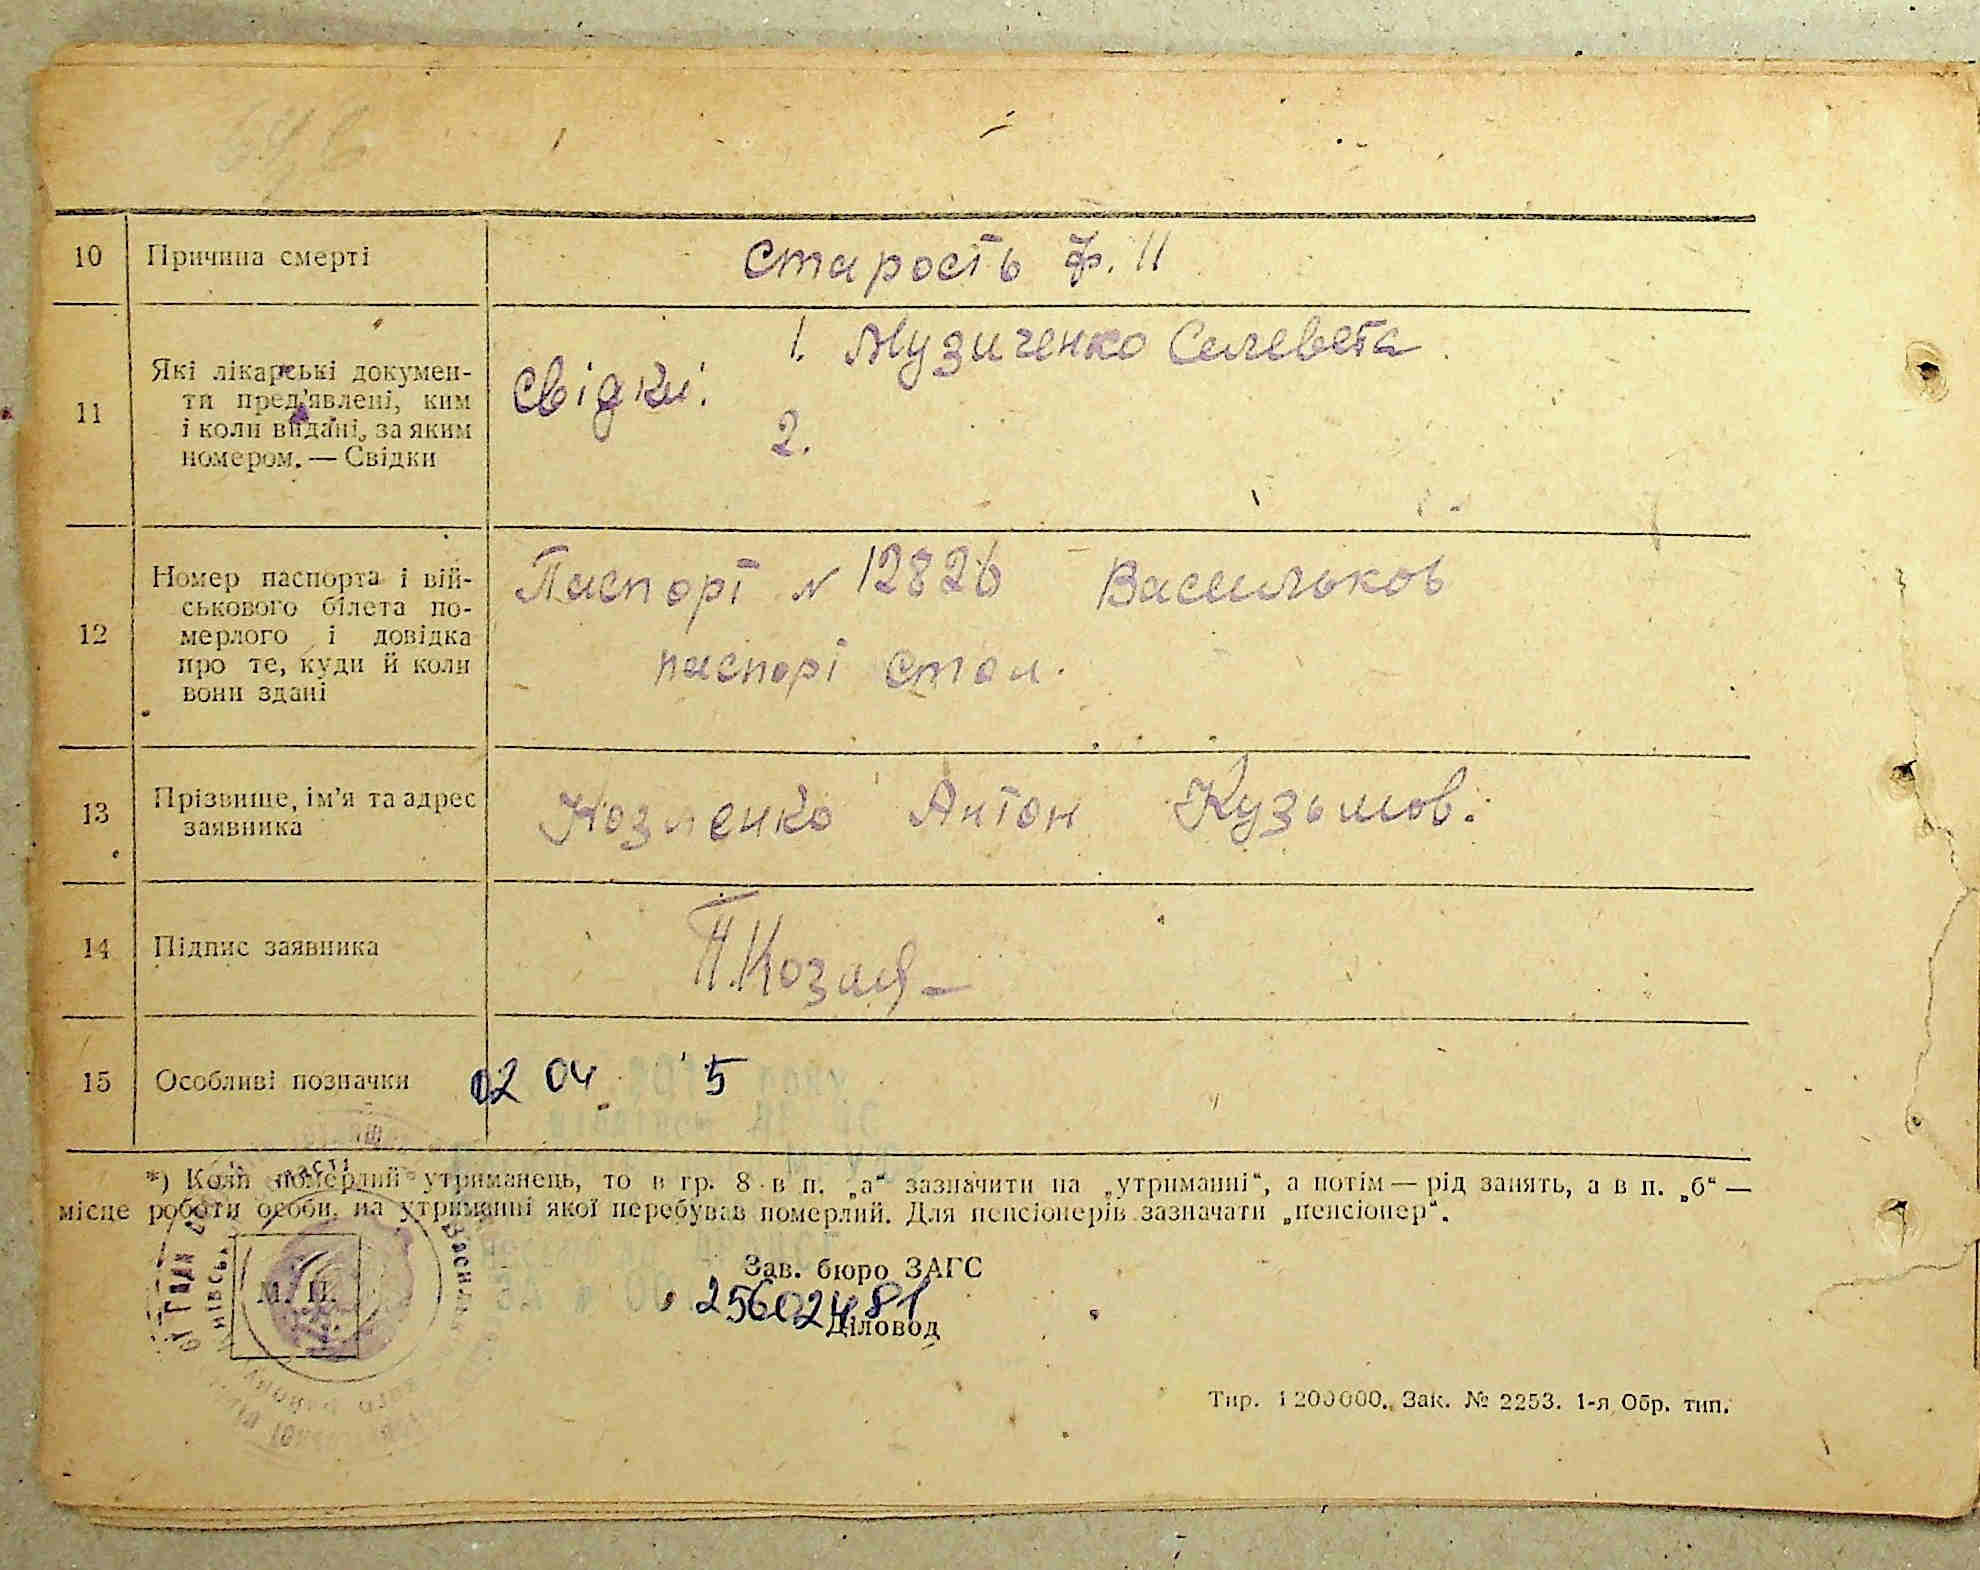 10 Причина смерті Старость ф. 11
11 Які лікарські докумен-
ти пред'явлені, ким
і коли видані, за яким
номером. — Свідки
Свідкі:
1. Музиченко Селевета
2.
12 Номер паспорта і вій-
ськового білета по-
мерлого і довідка
про те, куди й коли
вони здані
Паспорт № 12826 Васильков
паспорт стол.
13 Прізвище, ім'я та адрес
заявника
Козленко Антон Кузьмов.
14 Підпис заявника
15 Особливі позначки 02 04 5
*) Коли померлий утриманець, то в гр. 8 в п. „а“ зазначити на „утриманні“, а потім — рід занять, а в п. „б“ —
місце роботи особи, на утриманні якої перебував померлий. Для пенсіонерів зазначати „пенсіонер“.
М. П.
Зав. бюро ЗАГС
25602481
Діловод
Тир. 1200000. Зак. № 2253. 1-я Обр. тип.